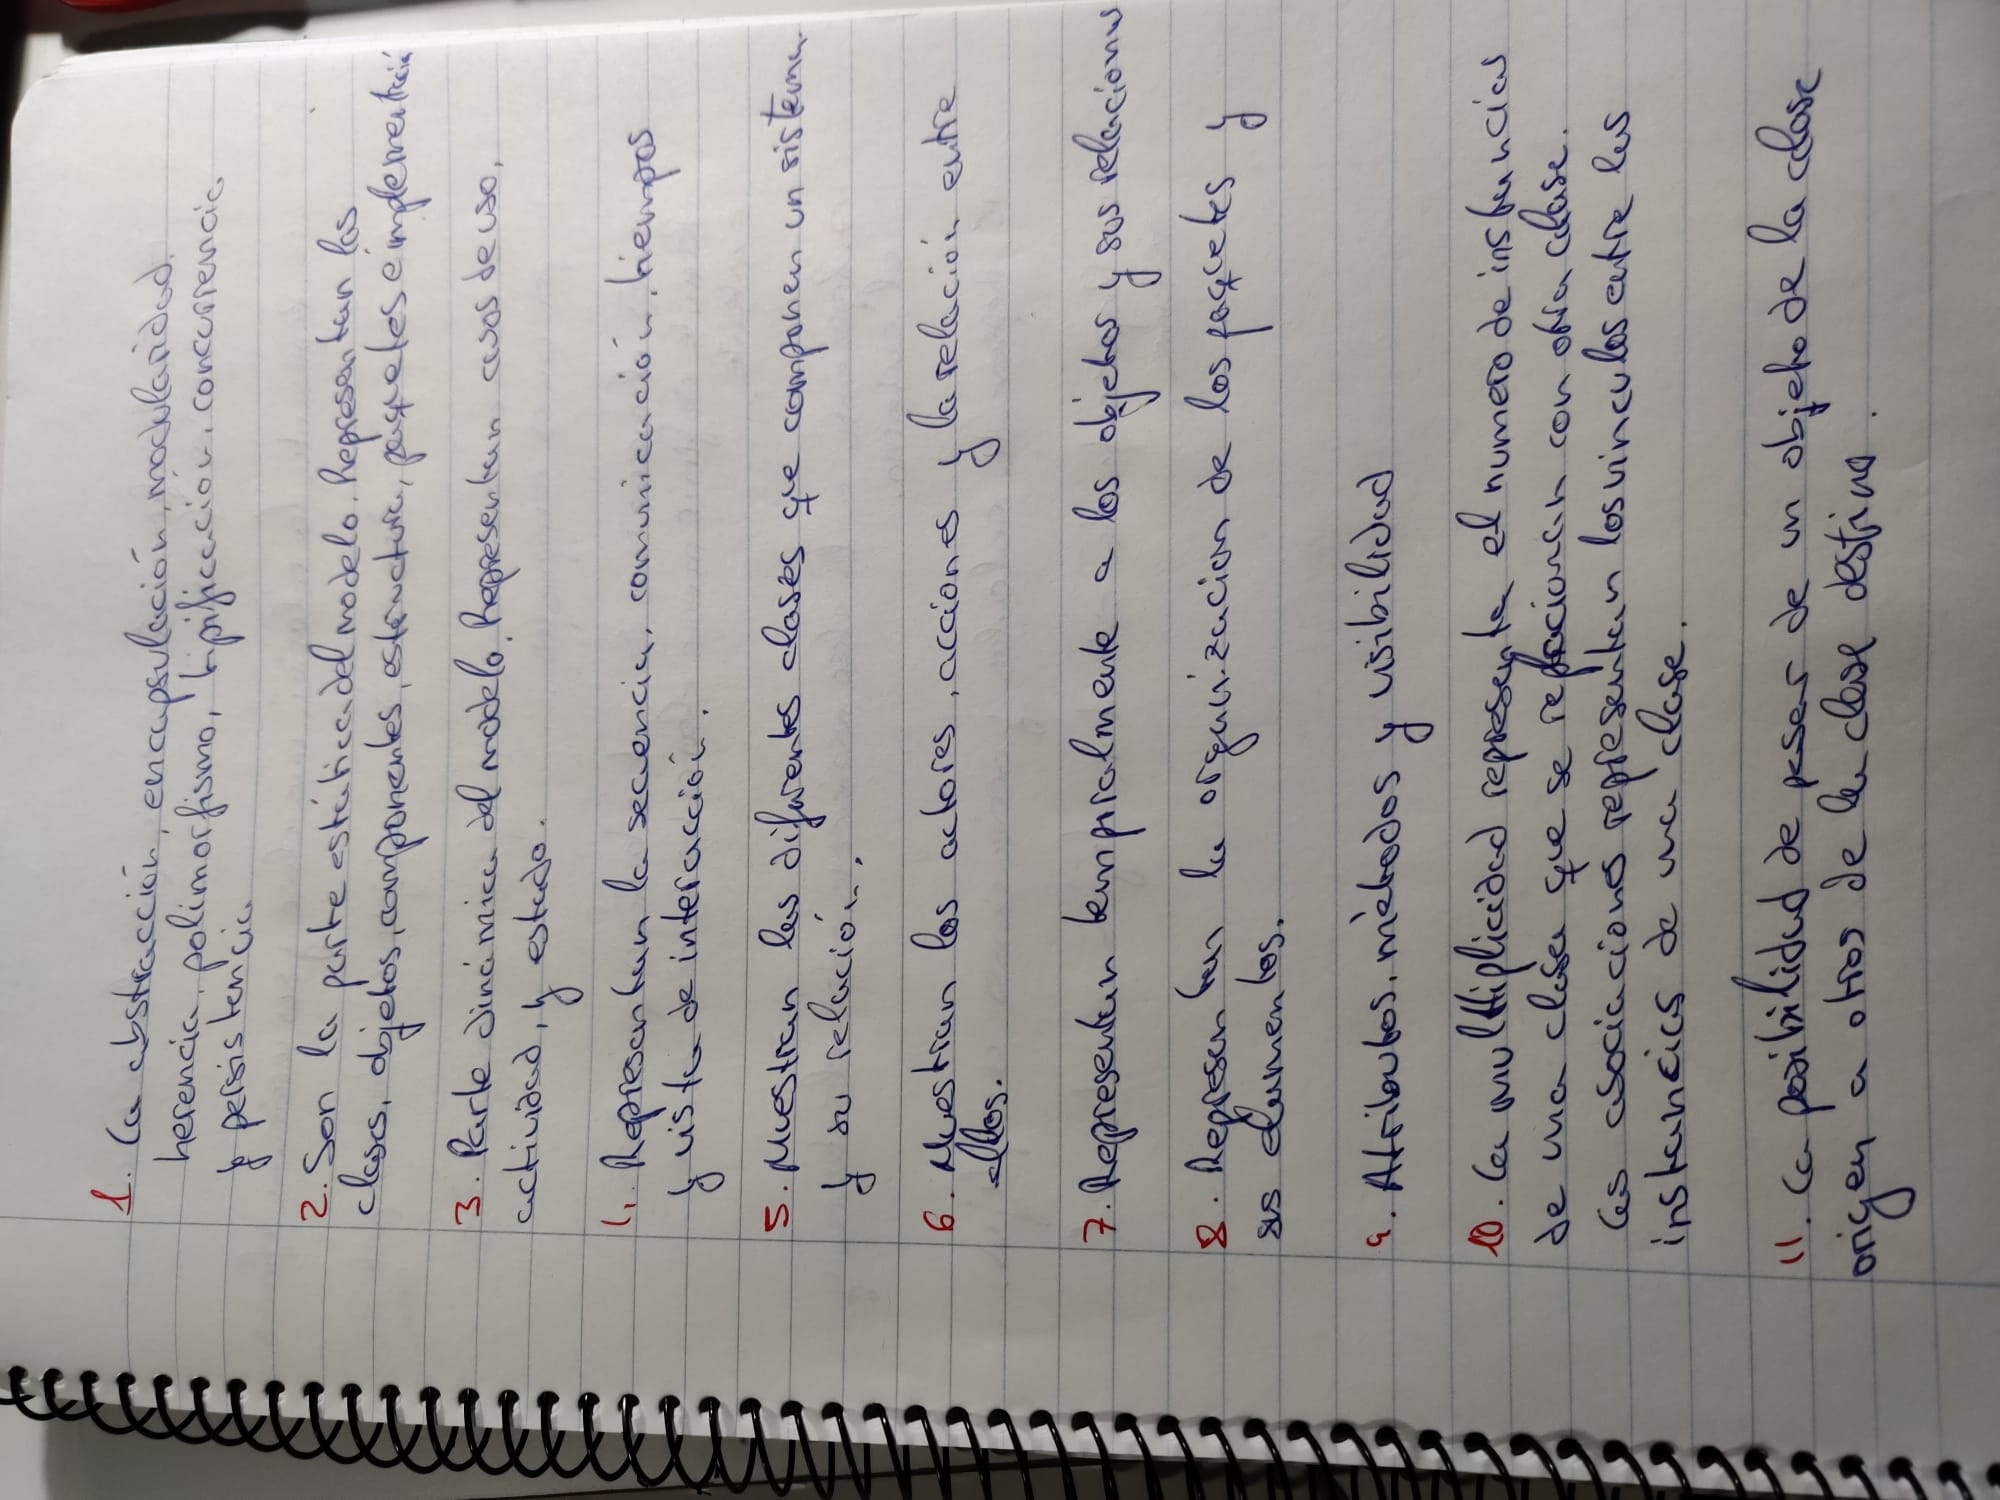 1. La abstracción, encapsulación, modularidad,
herencia, polimorfismo, tipificación, concurrencia
y persistencia
2. Son la parte estática del modelo. Representan las
clases, objetos, componentes, estructura, paquetes e implementación
3. Parte dinámica del modelo. Representan casos de uso,
actividad, y estado.
4. Representan la secuencia, comunicación, tiempos
y vista de interacción.
5. Muestran las diferentes clases que componen un sistema
y su relación.
6. Muestran los actores, acciones y la relación entre
ellos.
7. Representan temporalmente a los objetos y sus relaciones
8. Representan la organización de los paquetes y
sus elementos.
9. Atributos, métodos y visibilidad
10. La multiplicidad representa el numero de instancias
de una clase que se relacionan con otra clase.
Las asociaciones representan los vinculos entre las
instancias de una clase.
11. La posibilidad de pasar de un objeto de la clase
origen a otros de la clase destino.